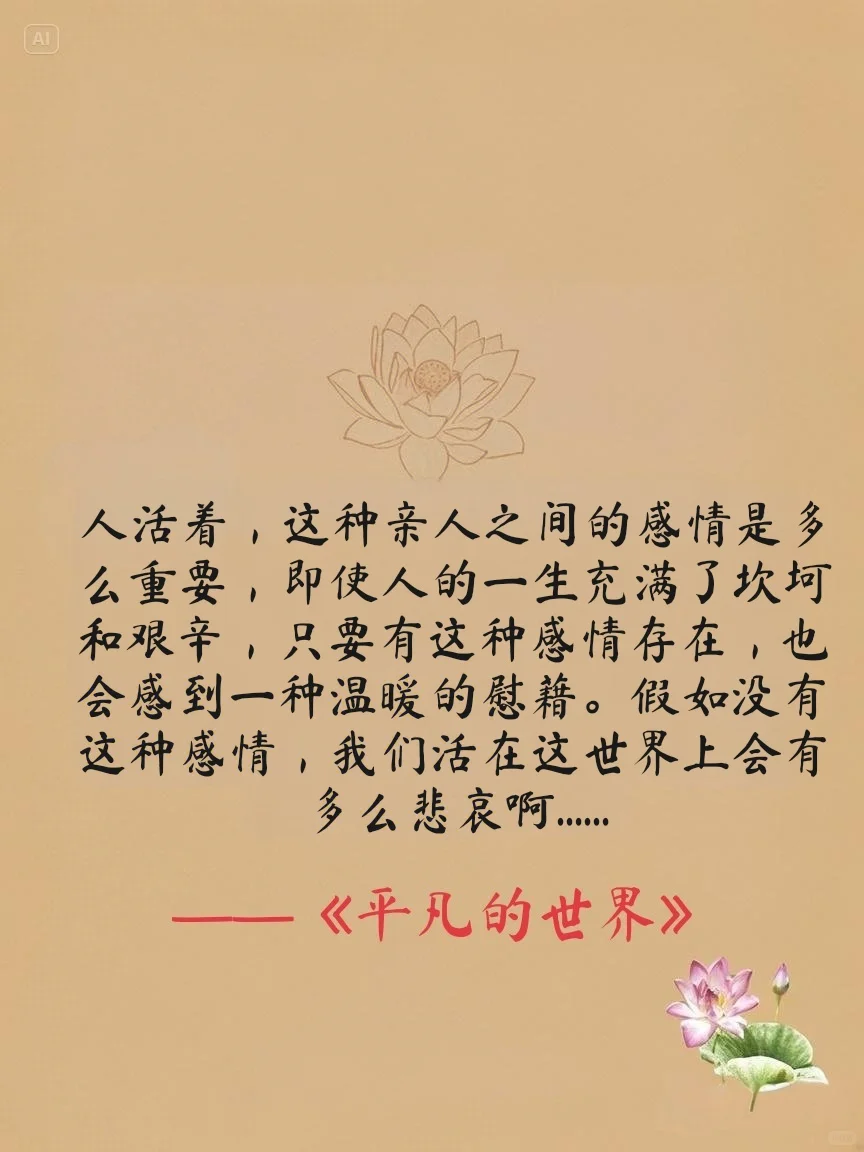 AI
人活着，这种亲人之间的感情是多
么重要，即使人的一生充满了坎坷
和艰辛，只要有这种感情存在，也
会感到一种温暖的慰藉。假如没有
这种感情，我们活在这世界上会有
多么悲哀啊......
——《平凡的世界》